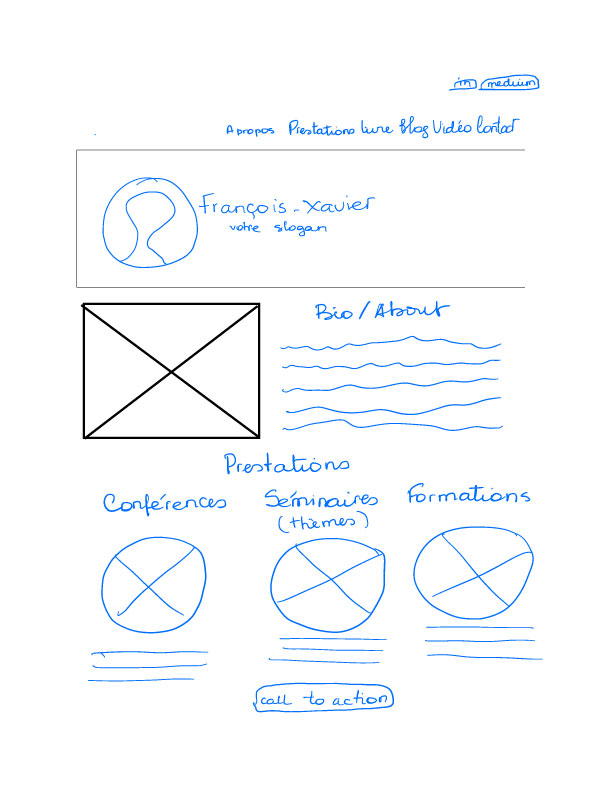 in medium
A propos Prestations Livre Blog Vidéo Contact
François-Xavier
votre slogan
Bio/About
Prestations
Conférences Séminaires Formations
(thèmes)
call to action